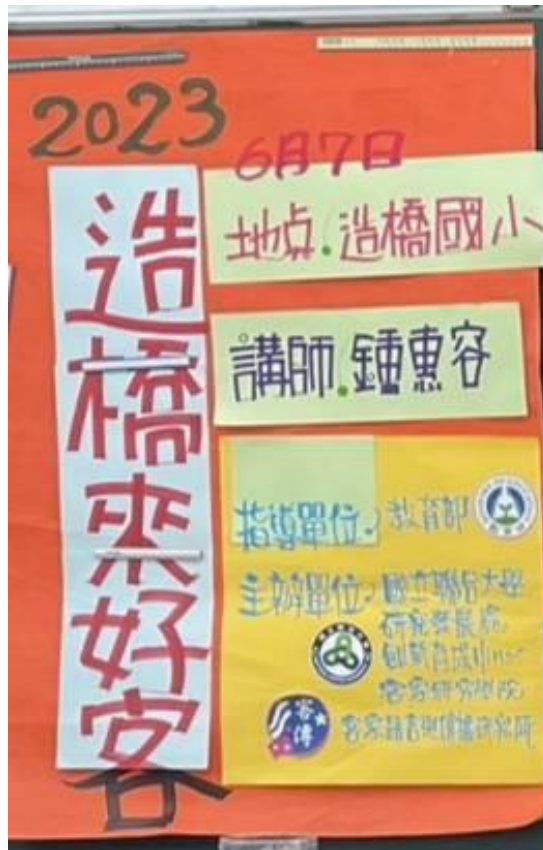 2023
6月7日
造橋來好客
地点.造橋國小
講師.鍾惠容
指導單位:教育部
主辦單位:國立聯合大學
研究發展處
創新育成
客家研究學院
客傳
客家語言與傳播研究所